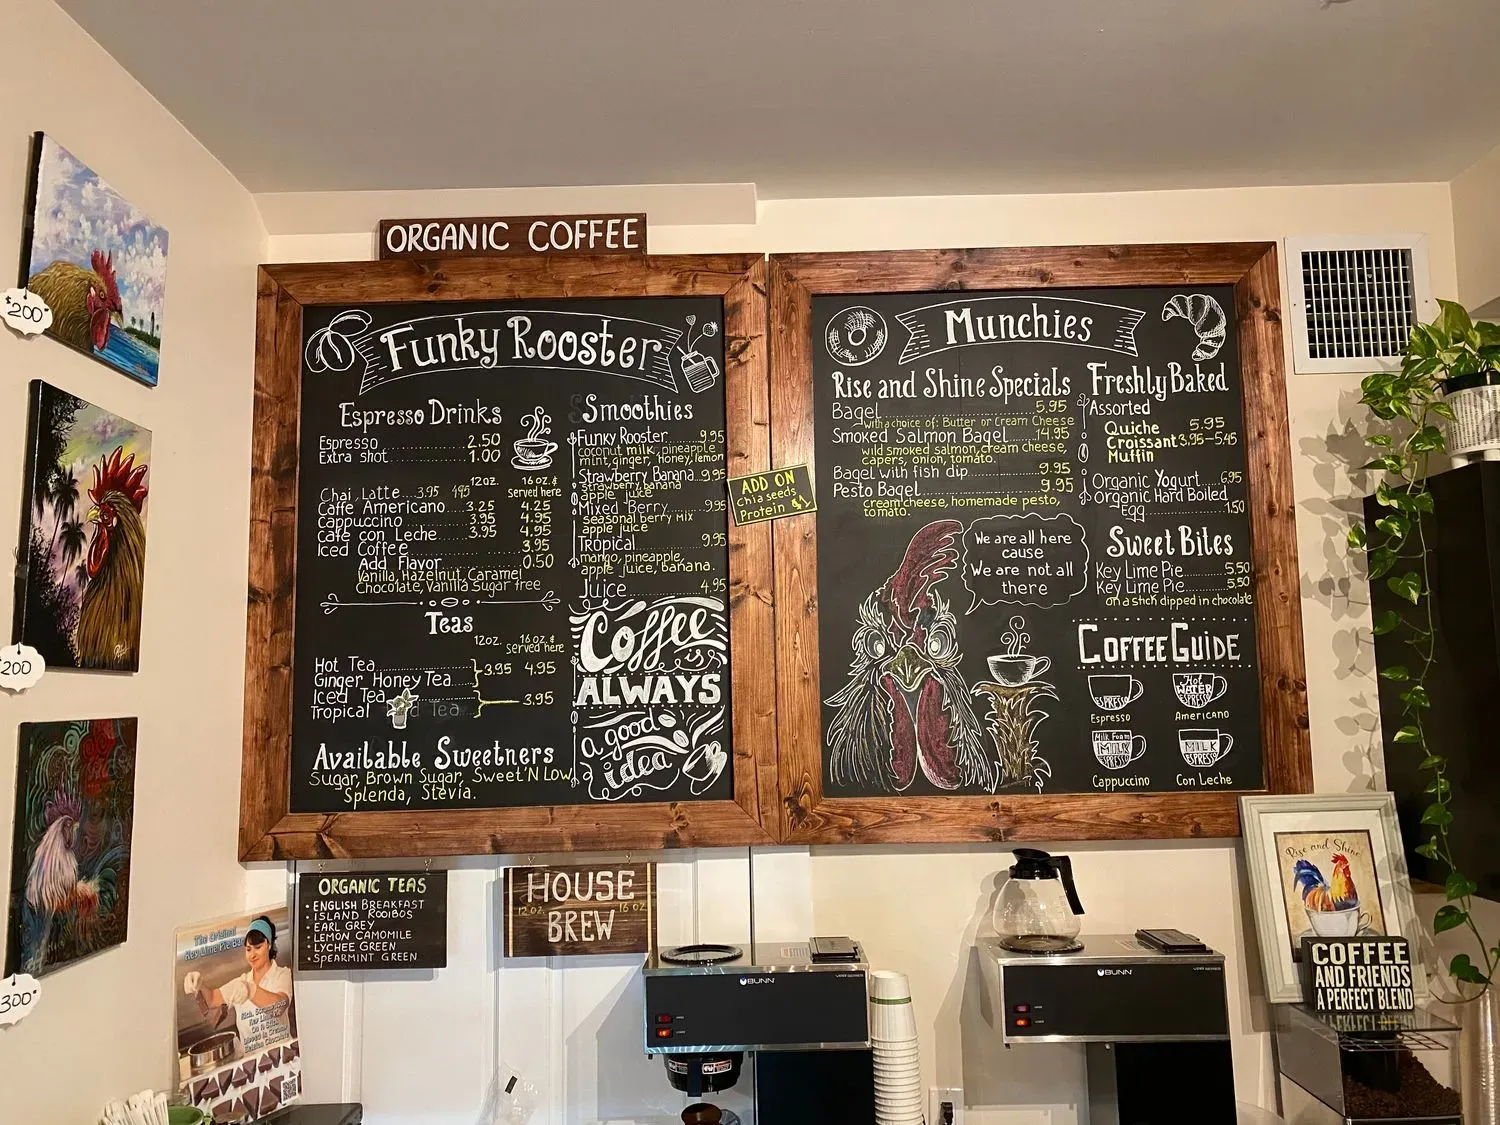 ORGANIC COFFEE
Funky Rooster
Espresso Drinks
Espresso 2.50
Extra shot 1.00
12oz. 16 oz. &
Served here
Chai Latte 3.95 4.95
Caffe Americano 3.25 4.25
Cappuccino 3.95 4.95
Cafe con Leche 3.95 4.95
Iced Coffee 3.95
Add Flavor 0.50
Vanilla, Hazelnut, Caramel
Chocolate, Vanilla Sugar free
Teas
12oz. 16 oz. &
Served here
Hot Tea
Ginger Honey Tea 3.95 4.95
Iced Tea
Tropical Iced Tea 3.95
Available Sweetners
Sugar, Brown Sugar, Sweet'N Low,
Splenda, Stevia.
Smoothies
Funky Rooster 9.95
coconut milk, pineapple
mint, ginger, honey, lemon
Strawberry Banana 9.95
Strawberry, banana
apple juice
Mixed Berry 9.95
seasonal berry mix
apple juice
Tropical 9.95
mango, pineapple,
apple juice, banana.
Juice 4.95
Coffee
is
ALWAYS
a good
idea
ADD ON
Chia seeds
Protein $1
Munchies
Rise and Shine Specials
Bagel 5.95
with a choice of: Butter or Cream Cheese
Smoked Salmon Bagel 14.95
wild smoked salmon, cream cheese,
capers, onion, tomato.
Bagel with fish dip 9.95
Pesto Bagel 9.95
cream cheese, homemade pesto,
tomato.
We are all here
cause
We are not all
there
Freshly Baked
Assorted
Quiche 5.95
Croissant 3.95-5.45
Muffin
Organic Yogurt 6.95
Organic Hard Boiled
Egg 1.50
Sweet Bites
Key Lime Pie 5.50
Key Lime Pie 5.50
on a stick dipped in chocolate
COFFEE GUIDE
ESPRESSO
Espresso
Hot
WATER
ESPRESSO
Americano
Milk Foam
MILK
ESPRESSO
Cappuccino
MILK
ESPRESSO
Con Leche
$200
200
300
ORGANIC TEAS
• ENGLISH BREAKFAST
• ISLAND ROOIBOS
• EARL GREY
• LEMON CAMOMILE
• LYCHEE GREEN
• SPEARMINT GREEN
HOUSE
12 OZ. 16 OZ.
BREW
The Original
Key Lime Pie Bar
Key Lime Pie
On a Stick
Dipped in Creamy
Belgian Chocolate
BUNN
BUNN
Rise and Shine!
COFFEE
AND FRIENDS
A PERFECT BLEND